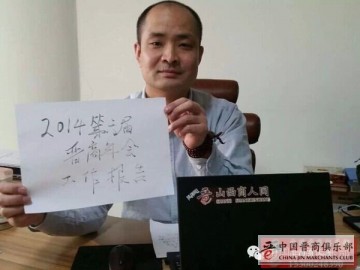 2014第二届
晋商年会
工作报告
晋
山西商人网
中国晋商俱乐部
CHINA JIN MERCHANTS CLUB